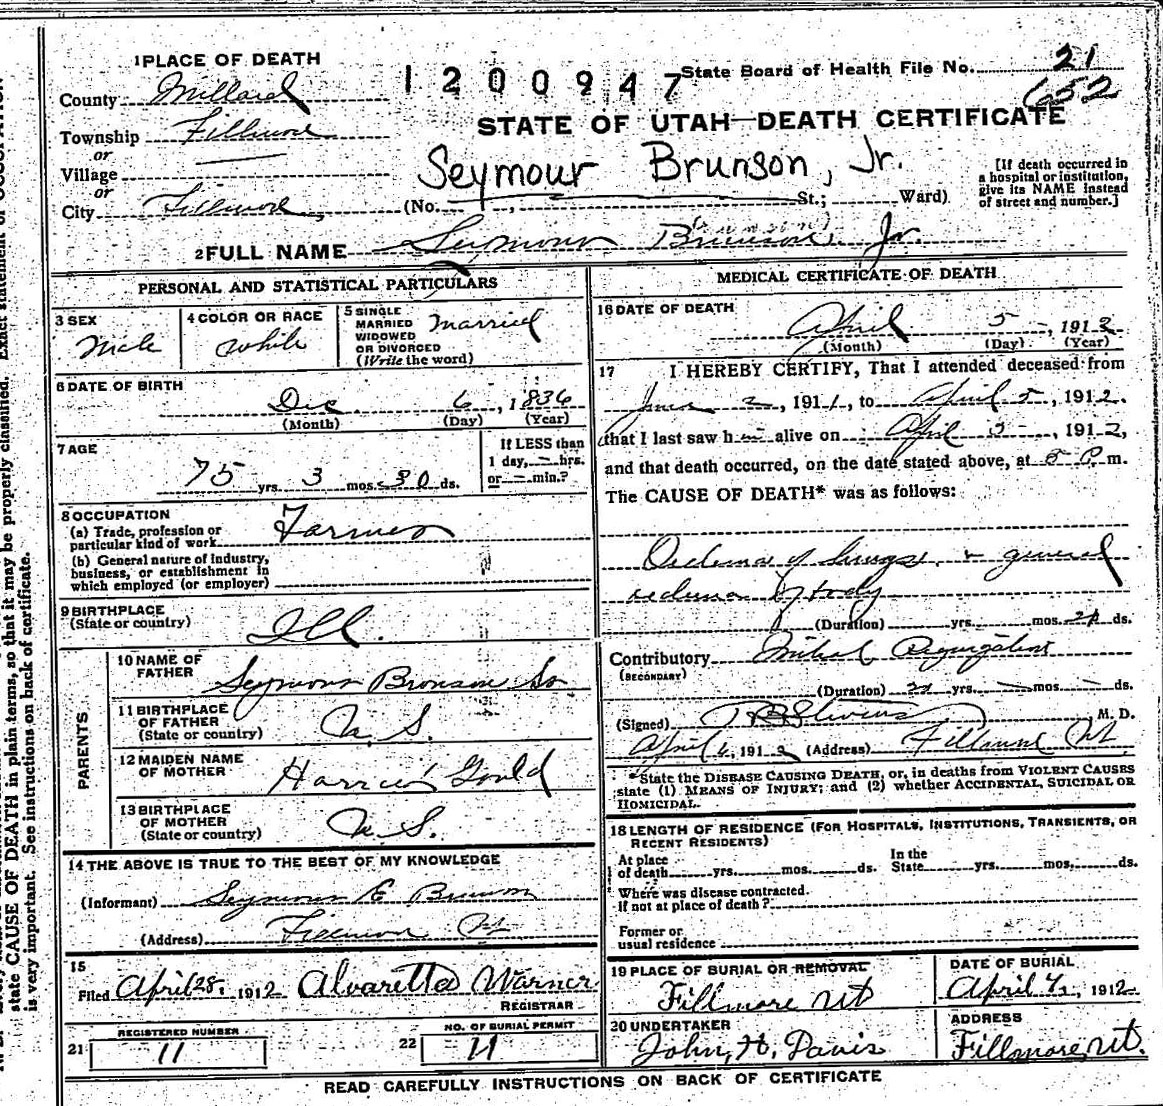 1 PLACE OF DEATH
1200947 State Board of Health File No. 21
652
County Millard
STATE OF UTAH—DEATH CERTIFICATE
Township Fillmore
or
Village
or
City Fillmore
Seymour Brunson, Jr.
(No. , St.; Ward)
[If death occurred in
a hospital or institution,
give its NAME instead
of street and number.]
2 FULL NAME Seymour Brunson Jr.
PERSONAL AND STATISTICAL PARTICULARS
3 SEX
Male
4 COLOR OR RACE
White
5 SINGLE
MARRIED
WIDOWED
OR DIVORCED
(Write the word)
Married
6 DATE OF BIRTH
Dec. 6, 1836
(Month) (Day) (Year)
7 AGE
75 yrs. 3 mos. 30 ds.
If LESS than
1 day, — hrs.
or — min.?
8 OCCUPATION
(a) Trade, profession or
particular kind of work Farmer
(b) General nature of industry,
business, or establishment in
which employed (or employer)
9 BIRTHPLACE
(State or country)
Ill.
PARENTS
10 NAME OF
FATHER
Seymour Bronson Sr
11 BIRTHPLACE
OF FATHER
(State or country)
U.S.
12 MAIDEN NAME
OF MOTHER
Harriet Gould
13 BIRTHPLACE
OF MOTHER
(State or country)
U.S.
14 THE ABOVE IS TRUE TO THE BEST OF MY KNOWLEDGE
(Informant) Seymour E Brunson
(Address) Fillmore Ut
15
Filed April 28, 1912 Alvaretta Warner
REGISTRAR
21 REGISTERED NUMBER
11
22 NO. OF BURIAL PERMIT
11
MEDICAL CERTIFICATE OF DEATH
16 DATE OF DEATH
April 5, 1912
(Month) (Day) (Year)
17 I HEREBY CERTIFY, That I attended deceased from
2, 1911, to April 5, 1912.
that I last saw him alive on April 5, 1912,
and that death occurred, on the date stated above, at P m.
The CAUSE OF DEATH* was as follows:
Oedema of lungs & general
oedema of body
(Duration) yrs. mos. 21 ds.
Contributory Mitral Regurgitation
(SECONDARY)
(Duration) yrs. — mos. — ds.
(Signed) Stevens, M. D.
April 6, 1912 (Address) Fillmore Ut.
*State the DISEASE CAUSING DEATH, or, in deaths from VIOLENT CAUSES
state (1) MEANS OF INJURY; and (2) whether ACCIDENTAL, SUICIDAL OR
HOMICIDAL.
18 LENGTH OF RESIDENCE (FOR HOSPITALS, INSTITUTIONS, TRANSIENTS, OR
RECENT RESIDENTS)
At place
of death yrs. mos. ds.
In the
State yrs. mos. ds.
Where was disease contracted
If not at place of death?
Former or
usual residence
19 PLACE OF BURIAL OR REMOVAL
Fillmore Ut
DATE OF BURIAL
April 7, 1912
20 UNDERTAKER
John H. Davis
ADDRESS
Fillmore, Ut.
READ CAREFULLY INSTRUCTIONS ON BACK OF CERTIFICATE
state CAUSE OF DEATH in plain terms, so that it may be properly classified. Exact statement of OCCUPATION
is very important. See instructions on back of certificate.